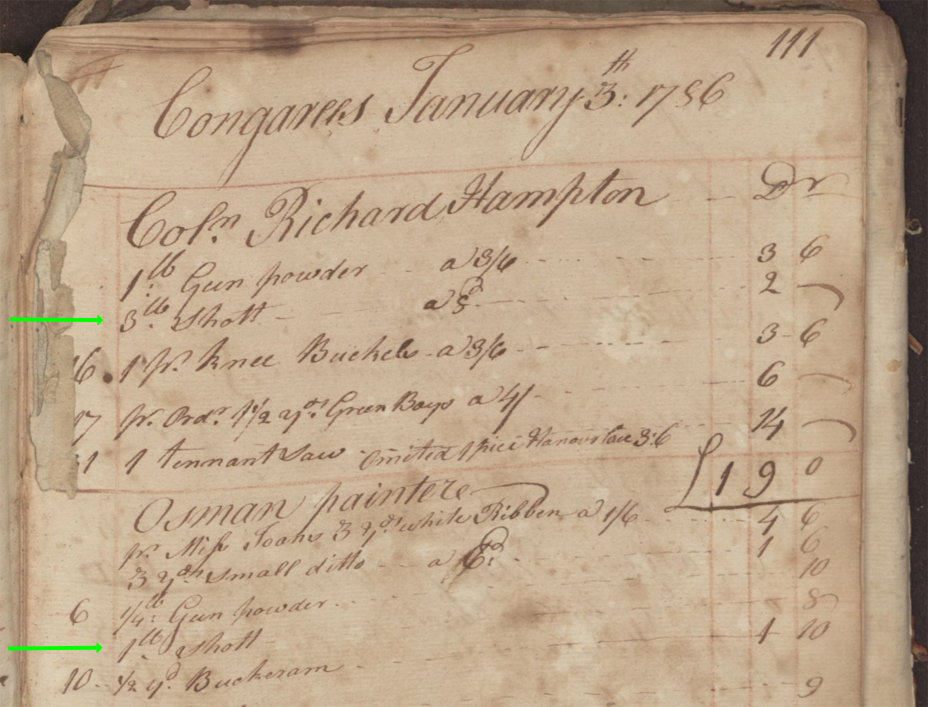 111
Congarees January 3th: 1786
Coln Richard Hampton Dr
1lb Gun powder a 3/6 3 6
3lb Shott a 8d 2 —
16 1 pr. Knee Buckels a 3/6 3 6
17 pr. Ordr. 1 1/2 yds Green Bays a 4/ 6 —
31 1 tennant Saw omited Spice 3:6 14 —
£1 9 0
Osman painter
pr. Miss Joans 3 yds white Ribben a 1/6 4 6
3 yds small ditto a 6d 1 6
6 1/4lb Gun powder 10
1lb Shott 8
1 10
10 1/2 yd. Buckeram 9